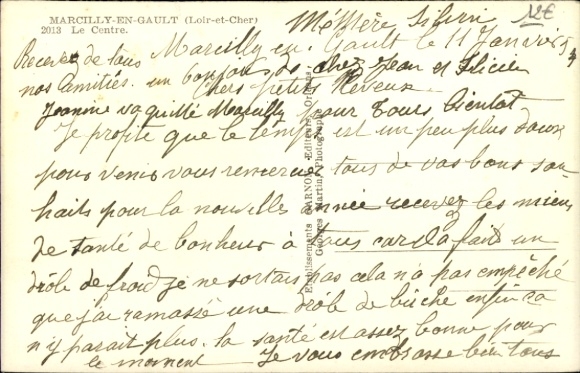 MARCILLY-EN-GAULT (Loir-et-Cher)
2013 Le Centre.
12€
Marcilly en Gault le 11 Janvier 54
Recevez de tous
nos amitiés. un bonjour de chez Jean et
Chers petits Neveux
Jeanine va quitté Marcilly pour Tours bientot
Je profite que le temps est un peu plus doux
pour venir vous remercier tous de vos bons sou
haits pour la nouvelle année recevez les miens
de santé de bonheur à tous car il a fait un
drole de froid je ne sortais pas cela n'a pas empêché
que j'ai ramassé une drole de bûche enfin ça
n'y parait plus. la santé est assez bonne pour
le moment Je vous embrasse bien tous
Etablissements BARNOUD, Editeurs, Orléans
Georges Martin, Photographe